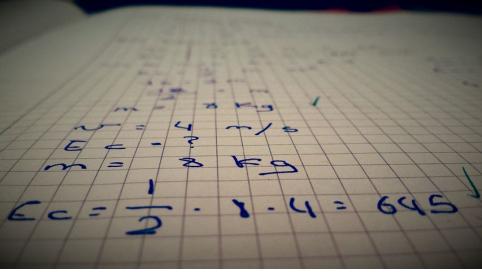 m 8 kg
v = 4 m/s
Ec = ?
m = 8 kg
Ec = 1/2 · 8 · 4 = 64J